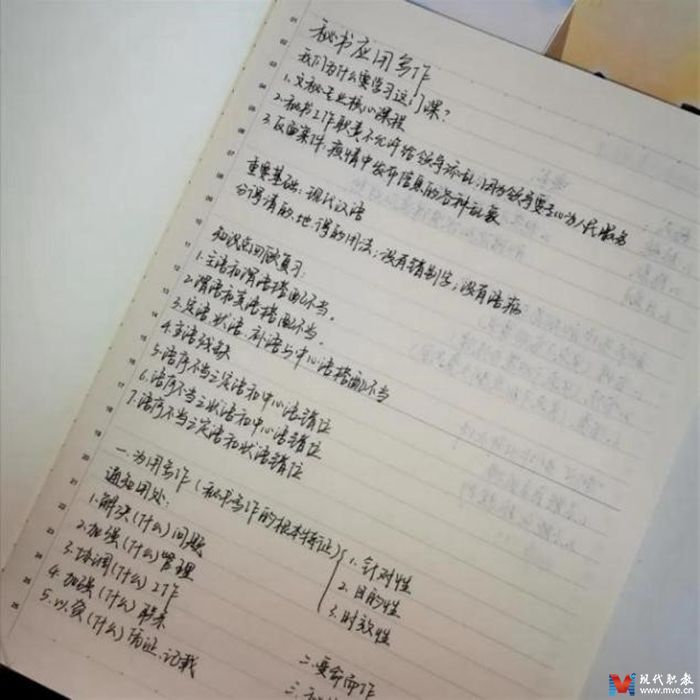 秘书应用写作
我们为什么要学习这门课?
1.文秘专业核心课程
2.秘书工作职责不允许给领导添乱,因为领导要全心为人民服务
3.反面案件,疫情中发布信息的各种乱象
重要基础:现代汉语
分得清的、地、得的用法;没有错别字;没有语病
知识点回顾复习:
1.主语和谓语搭配不当。
2.谓语和宾语搭配不当。
3.定语、状语、补语与中心语搭配不当
4.主语残缺
5.语序不当之定语和中心语错位
6.语序不当之状语和中心语错位
7.语序不当之定语和状语错位
一.为用写作(秘书写作的根本特征)
1.针对性
2.目的性
3.时效性
通知用处:
1.解决(什么)问题
2.加强(什么)管理
3.协调(什么)工作
4.加强(什么)联系
5.以资(什么)凭证、记载
二.受命而作
现代职教
www.mve.cn